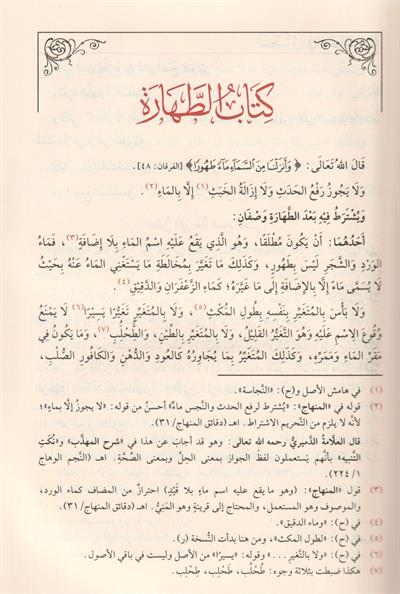 كِتَابُ الطَّهَارَةِ
قَالَ اللهُ تَعَالَى: ﴿وَأَنزَلْنَا مِنَ ٱلسَّمَآءِ مَآءً طَهُورًا﴾ [الفرقان: ٤٨].
وَلَا يَجُوزُ رَفْعُ الحَدَثِ وَلَا إِزَالَةُ الخَبَثِ(١) إِلَّا بِالمَاءِ(٢).
وَيُشْتَرَطُ فِيْهِ بَعْدَ الطَّهَارَةِ وَصْفَانِ:
أَحَدُهُمَا: أَنْ يَكُونَ مُطْلَقًا، وَهُوَ الَّذِي يَقَعُ عَلَيْهِ اسْمُ المَاءِ بِلَا إِضَافَةٍ(٣)، فَمَاءُ
الوَرْدِ وَالشَّجَرِ لَيْسَ بِطَهُورٍ، وَكَذَلِكَ مَا تَغَيَّرَ بِمُخَالَطَةِ مَا يَسْتَغْنِي المَاءُ عَنْهُ بِحَيْثُ
لَا يُسَمَّى مَاءً إِلَّا بِالإِضَافَةِ إِلَى مَا غَيَّرَهُ؛ كَمَاءِ الزَّعْفَرَانِ وَالدَّقِيْقِ(٤).
وَلَا بَأْسَ بِالمُتَغَيِّرِ بِنَفْسِهِ بِطُولِ المُكْثِ(٥)، وَلَا بِالمُتَغَيِّرِ تَغَيُّرًا يَسِيْرًا(٦) لَا يَمْنَعُ
وُقُوعَ الِاسْمِ عَلَيْهِ وَهُوَ التَّغَيُّرُ القَلِيْلُ، وَلَا بِالمُتَغَيِّرِ بِالطِّيْنِ، وَالطُّحْلُبِ(٧)، وَمَا يَكُونُ فِي
مَقَرِّ المَاءِ وَمَمَرِّهِ، وَكَذَلِكَ المُتَغَيِّرُ بِمَا يُجَاوِرُهُ كَالعُودِ وَالدُّهْنِ وَالكَافُورِ الصُّلْبِ،
(١) في هامش الأصل و(ح): «النَّجاسة».
(٢) قوله في «المنهاج»: «يُشترط لرفع الحدث والنَّجس ماءٌ» أحسنُ من قوله: «لا يجوزُ إلَّا بماء»؛
لأنَّه لا يلزم من التَّحريم الاشتراط. اهـ (دقائق المنهاج/ ٣١).
قال العلَّامةُ الدَّميريُّ رحمه الله تعالى: وهو قد أجابَ عن هذا في «شرح المهذَّب» و«نُكَتِ
التَّنبيه» بأنَّهم يَستعملون لفظَ الجواز بمعنى الحِلِّ وبمعنى الصِّحَّة. اهـ (النَّجم الوهاج
١/ ٢٢٤).
(٣) قول «المنهاج»: (وهو ما يقع عليه اسم ماءٍ بلا قَيْدٍ) احترازٌ من المضاف كماء الورد،
والموصوف وهو المستعمل، والمحتاج إلى قرينةٍ وهو المَنِيُّ. اهـ (دقائق المنهاج/ ٣١).
(٤) في (ح): «وماء الدقيق».
(٥) في (ح): «لطول المكث»، ومن هنا بدأت النُّسخة (ر).
(٦) في (ح): «ولا بالتَّغيير...» وقوله: «يسيرًا» من الأصل وليست في باقي الأصول.
(٧) هكذا ضبطت بثلاثة وجوه: طُحْلُب، طُحْلَب، طِحْلِب.